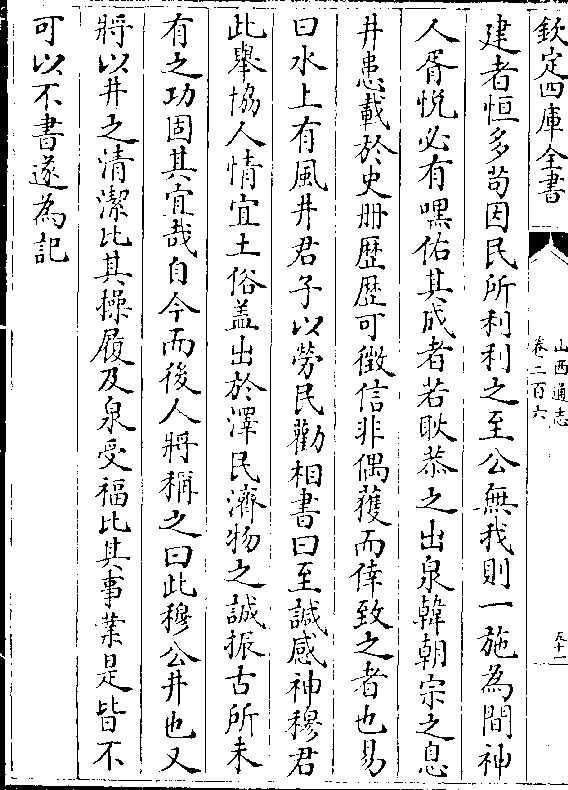 欽定四庫全書
山西通志
卷二百六
建者恒多苟因民所利利之至公無我則一施為間神
人胥悦必有嘿佑其成者若耿恭之出泉韓朝宗之息
井患載於史册歴歴可徵信非偶獲而倖致之者也易
曰水上有風井君子以勞民勸相書曰至諴感神穆君
此舉協人情宜土俗盖出於澤民濟物之誠振古所未
有之功固其宜哉自今而後人將稱之曰此穆公井也又
將以井之清潔比其操履及泉受福比其事業是皆不
可以不書遂為記